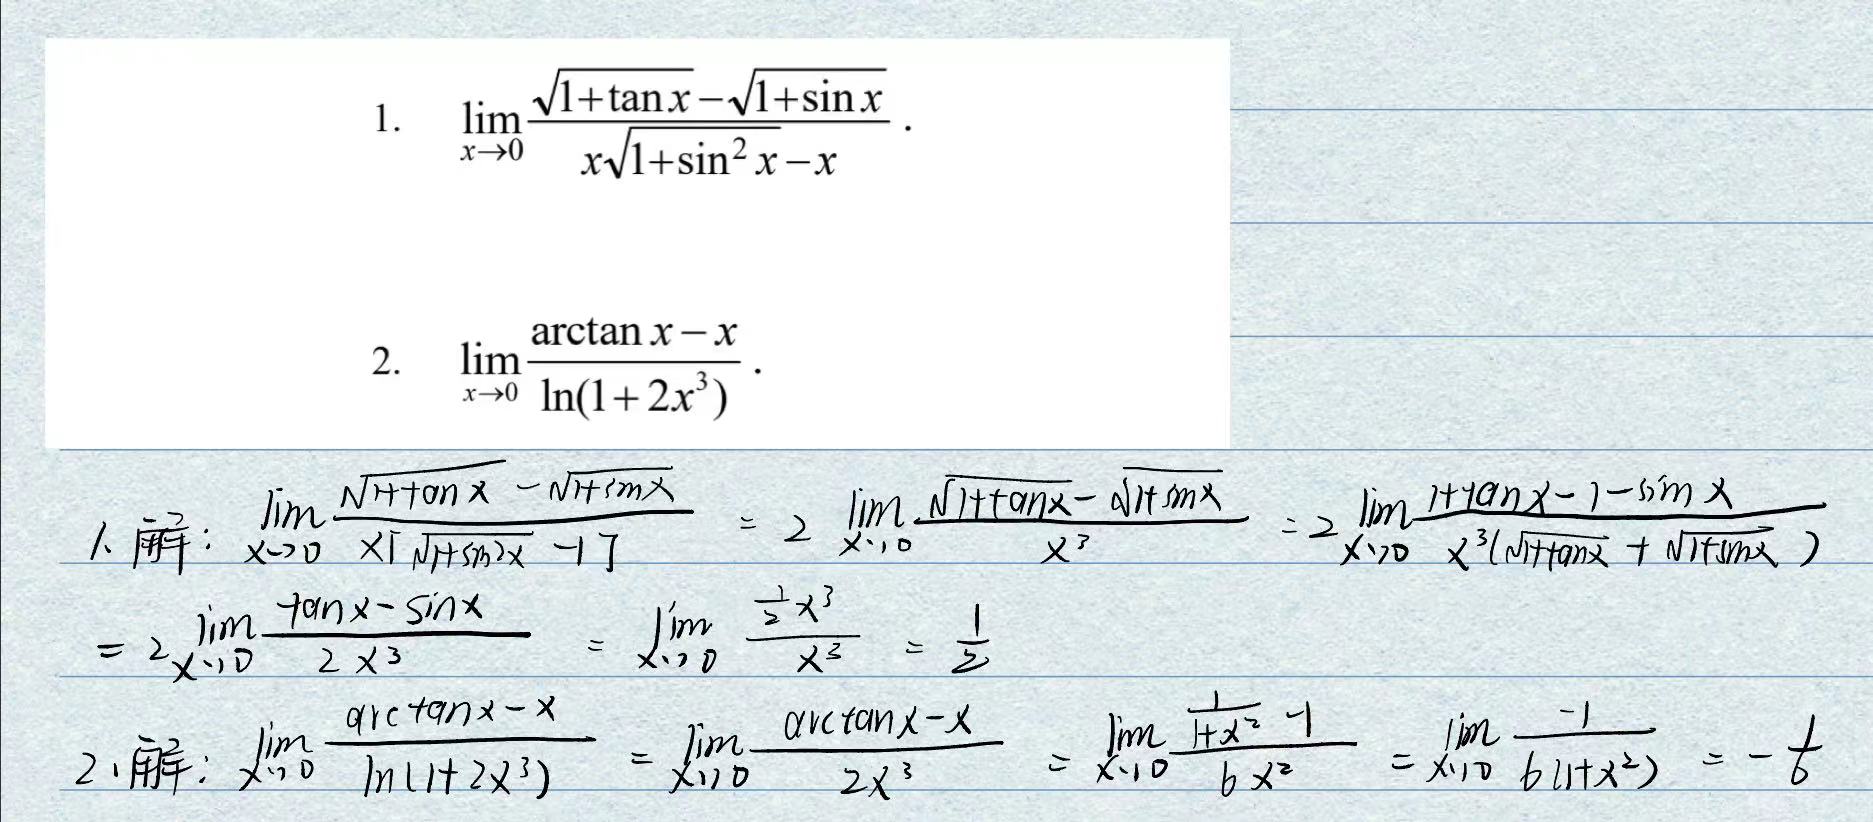 1. lim_{x→0} \frac{\sqrt{1+\tan x}-\sqrt{1+\sin x}}{x\sqrt{1+\sin^2 x}-x}.
2. lim_{x→0} \frac{\arctan x-x}{\ln(1+2x^3)}.
1、解: lim_{x→0} \frac{\sqrt{1+\tan x}-\sqrt{1+\sin x}}{x[\sqrt{1+\sin^2 x}-1]} = 2 lim_{x→0} \frac{\sqrt{1+\tan x}-\sqrt{1+\sin x}}{x^3} = 2 lim_{x→0} \frac{1+\tan x-1-\sin x}{x^3(\sqrt{1+\tan x}+\sqrt{1+\sin x})}
= 2 lim_{x→0} \frac{\tan x-\sin x}{2x^3} = lim_{x→0} \frac{\frac{1}{2}x^3}{x^3} = \frac{1}{2}
2、解: lim_{x→0} \frac{\arctan x-x}{\ln(1+2x^3)} = lim_{x→0} \frac{\arctan x-x}{2x^3} = lim_{x→0} \frac{\frac{1}{1+x^2}-1}{6x^2} = lim_{x→0} \frac{-1}{6(1+x^2)} = -\frac{1}{6}